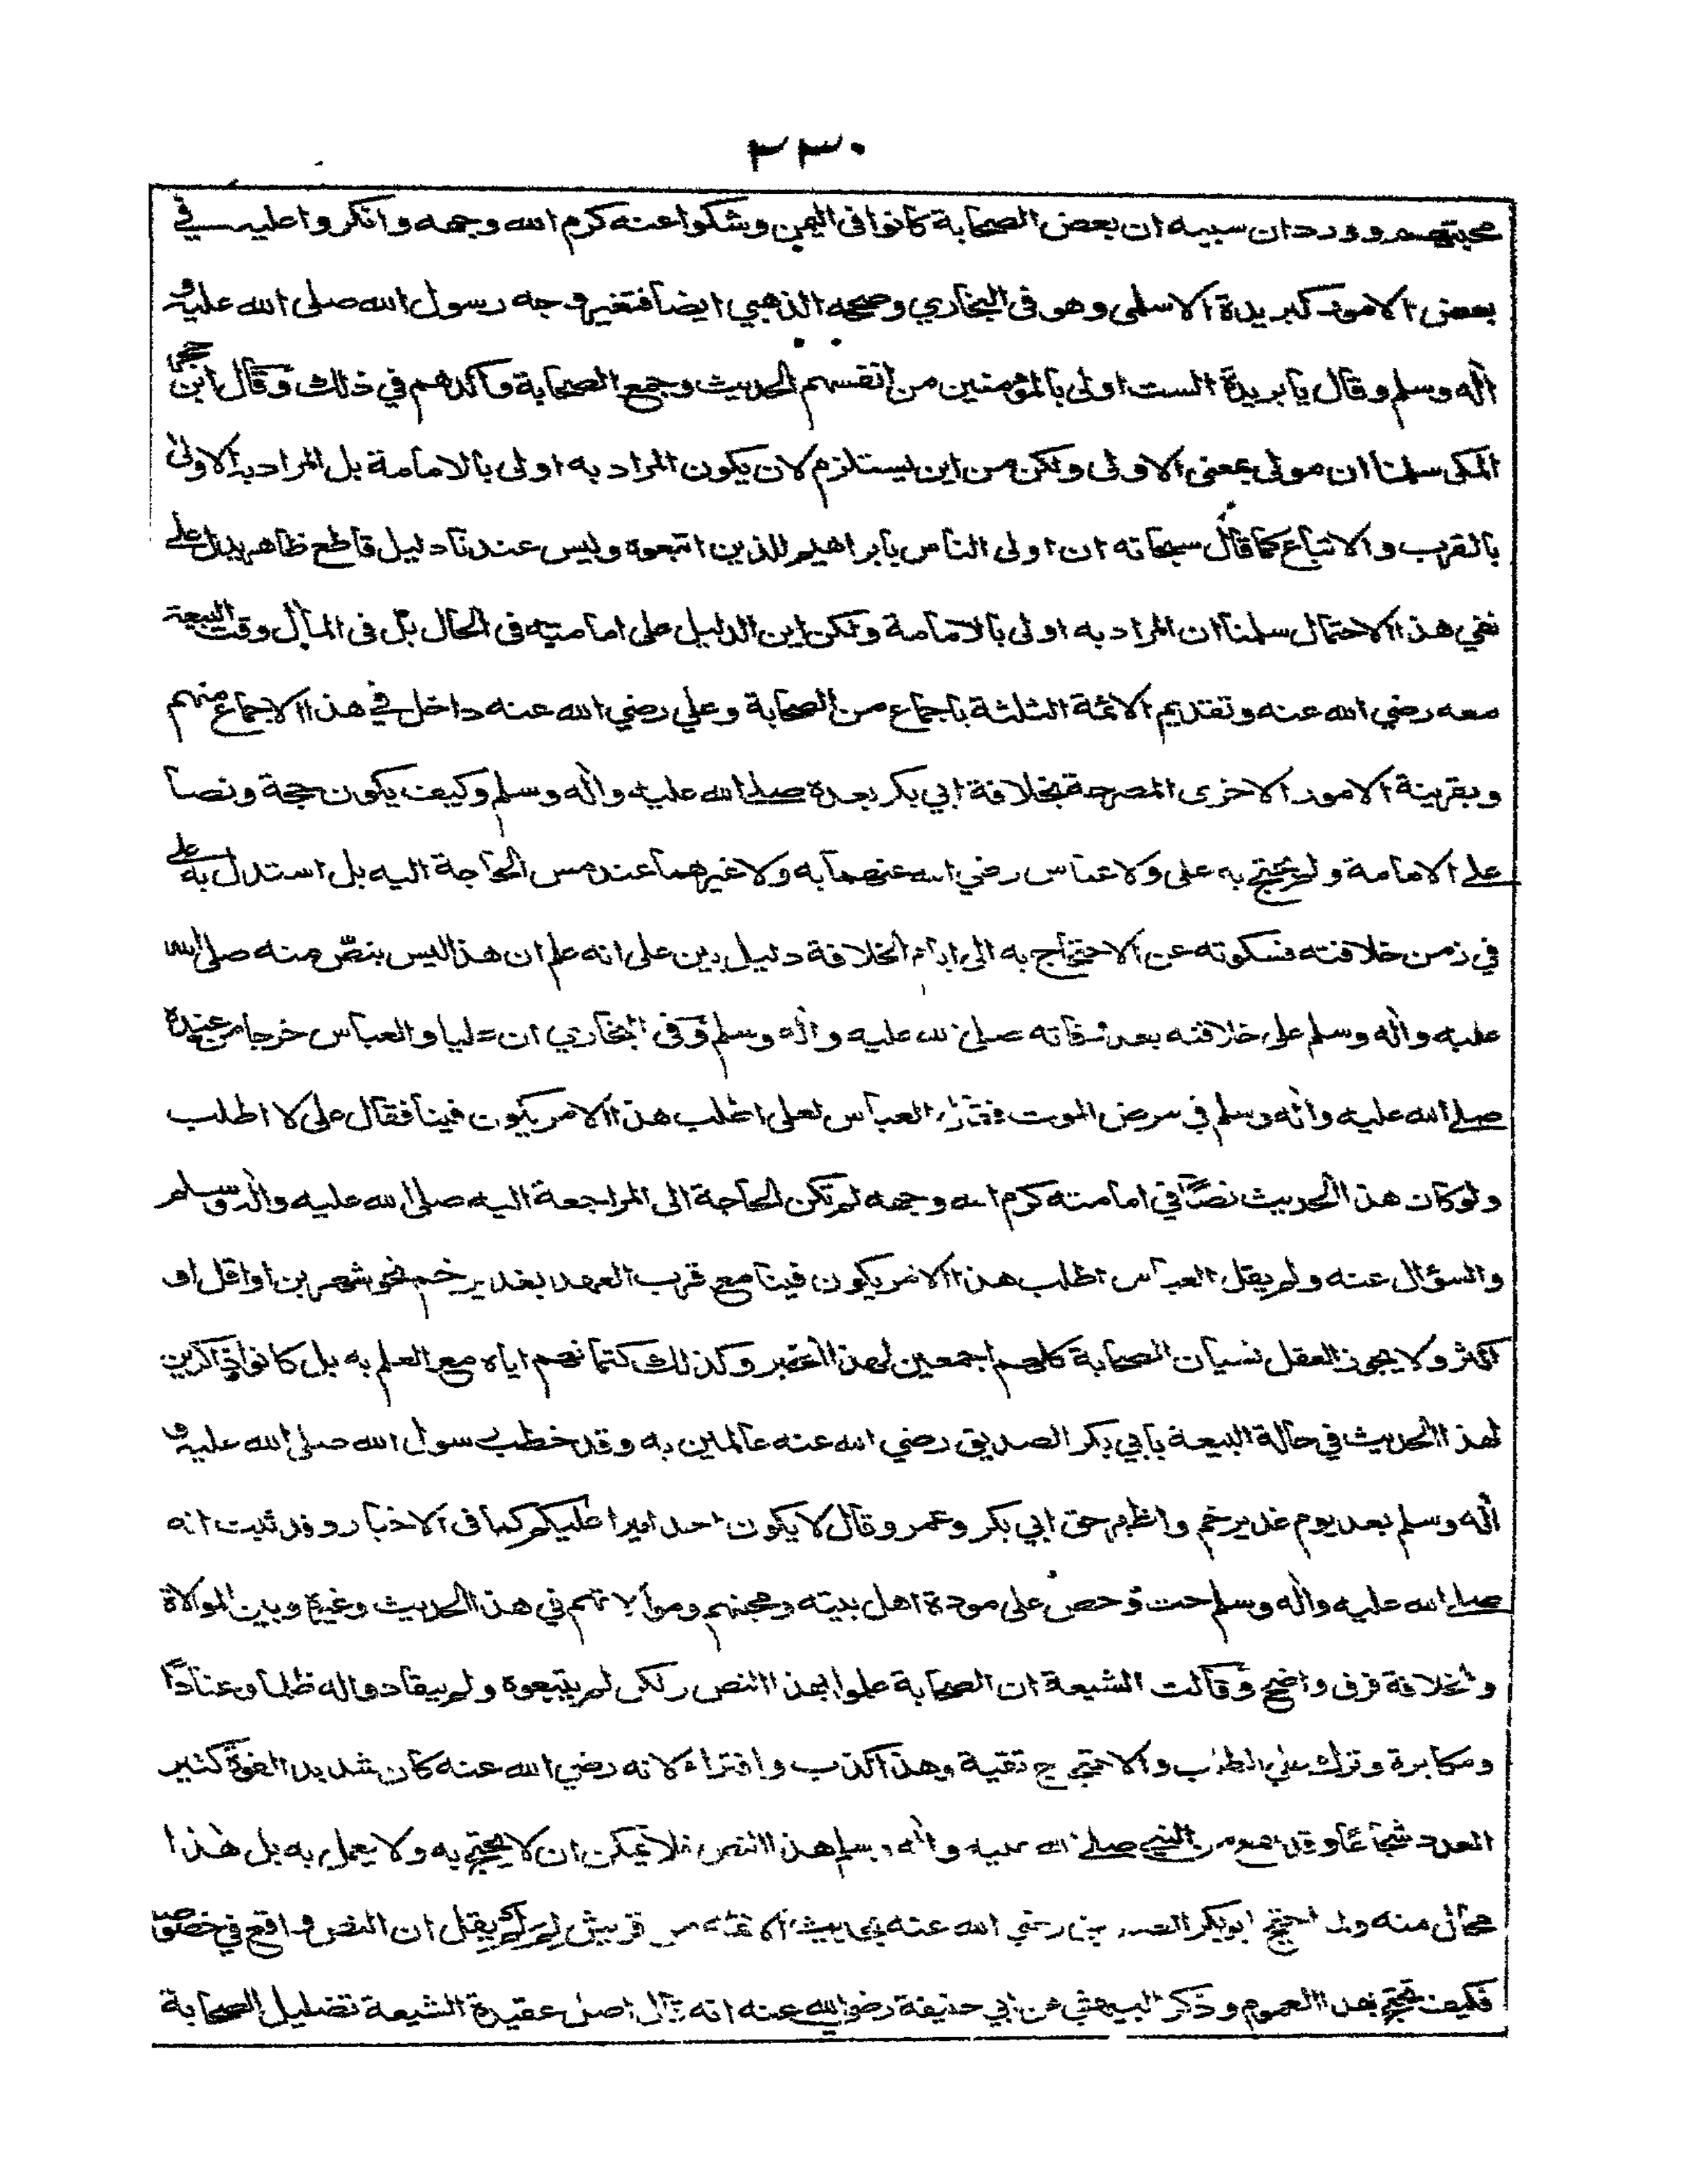 ٢٣٠
محبتهم وورد ان سببه ان بعض الصحابة كانوا فى اليمن وشكوا عنه كرم الله وجهه وانكروا عليه في
بعض الامور كبريدة الاسلمى وهو فى البخاري وصححه الذهبي ايضا فتغير وجه رسول الله صلى الله عليه و
اله وسلم وقال يا بريدة الست اولى بالمؤمنين من انفسهم الحديث وجمع الصحابة واكدهم في ذلك وقال ابن حجر
المكى سلمنا ان مولى بمعنى الاولى ولكن من اين يستلزم لان يكون المراد به اولى بالامامة بل المراد به الاولى
بالقرب والاتباع كما قال سبحانه ان اولى الناس بابراهيم للذين اتبعوه وليس عندنا دليل قاطع ظاهر يدل على
نفي هذا الاحتمال سلمنا ان المراد به اولى بالامامة ولكن اين الدليل على امامتيه فى الحال بل فى المال وقت البيعة
معه رضي الله عنه وتقديم الائمة الثلثة باجماع من الصحابة وعلي رضي الله عنه داخل في هذا الاجماع منهم
وبقرينة الامور الاخرى المصرحة بخلافة ابي بكر بعده صلى الله عليه واله وسلم وكيف يكون حجة ونصا
على الامامة ولم يحتج به على ولا عباس رضي الله عنهما به ولا غيرهما عند مس الحاجة اليه بل استدل به على
في زمن خلافته فسكوته عن الاحتجاج به الى ايام الخلافة دليل بين على انه علم ان هذا ليس بنص منه صلى الله
عليه واله وسلم على خلافته بعد وفاته صلى الله عليه واله وسلم وفى البخاري ان عليا والعباس خرجا من عنده
صلى الله عليه واله وسلم في مرض الموت فقال العباس لعلى اطلب هذا الامر يكون فينا فقال على لا اطلب
ولو كان هذا الحديث نصا في امامته كرم الله وجهه لم تكن الحاجة الى المراجعة اليه صلى الله عليه واله وسلم
والسؤال عنه ولم يقل العباس اطلب هذا الامر يكون فينا مع قرب العهد بغدير خم نحو شهرين او اقل او
اكثر ولا يجوز العقل نسيان الصحابة كلهم اجمعين لهذا الخبر وكذلك كتمانهم اياه مع العلم به بل كانوا ذاكرين
لهذا الحديث في حالة البيعة بابي بكر الصديق رضي الله عنه عالمين به وقد خطب رسول الله صلى الله عليه و
اله وسلم بعد يوم غدير خم واظهر حق ابي بكر وعمر وقال لا يكون احد اميرا عليكم كما فى الاخبار وقد ثبت انه
صلى الله عليه واله وسلم حث وحض على مودة اهل بيته ومحبتهم وموالاتهم في هذا الحديث وغيره وبين الموالاة
والخلافة فرق واضح وقالت الشيعة ان الصحابة علموا بهذا النص ولكن لم يتبعوه ولم ينقادوا له ظلما وعنادا
ومكابرة وترك على الطلب والاحتجاج تقية وهذا كذب وافتراء لانه رضي الله عنه كان شديد القوة كثير
العدد شجاعا وقد سمع من النبي صلى الله عليه واله وسلم هذا النص فلا يمكن ان لا يحتج به ولا يعمل به بل هذا
محال منه ولما احتج ابو بكر الصديق رضي الله عنه بحديث الائمة من قريش لم لم يقل ان النص واقع في خصوص
فكيف تحتج بهذا العموم وذكر البيهقي عن ابي حنيفة رضي الله عنه انه قال اصل عقيدة الشيعة تضليل الصحابة